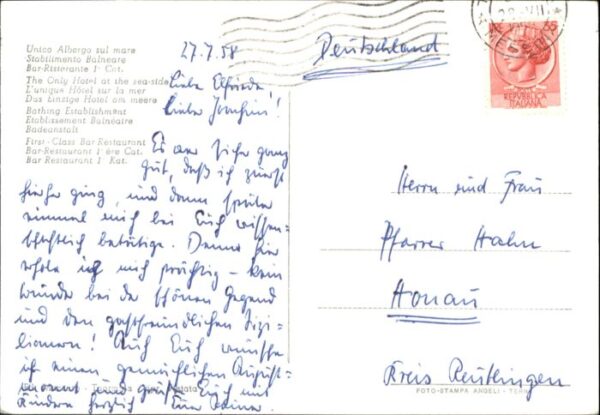 Unico Albergo sul mare
Stabilimento Balneare
Bar-Ristorante 1ª Cat.
The Only Hotel at the sea-side
L'unique Hôtel sur la mer
Das Einzige Hotel am meere
Bathing Establishment
Etablissement Balnéaire
Badeanstalt
First-Class Bar-Restaurant
Bar-Restaurant 1ère Cat.
Bar Restaurant 1 Kat.
27.7.58
Liebe Elfriede,
Lieber Joachim!
Es war sicher ganz
gut, daß ich zuerst
hierher ging, und dann später
einmal mich bei Euch wissen-
schaftlich betätige. Denn hier
erhole ich mich prächtig – kein
Wunder bei der schönen Gegend
und den gastfreundlichen Sizi-
lianern! Auch Euch wünsche
ich einen gemütlichen August-
monat und grüße Euch mit
Kindern herzlich Eure
Deutschland
REPVBBLICA
ITALIANA
Herrn und Frau
Pfarrer Hahn
Honau
Kreis Reutlingen
FOTO-STAMPA ANGELI -